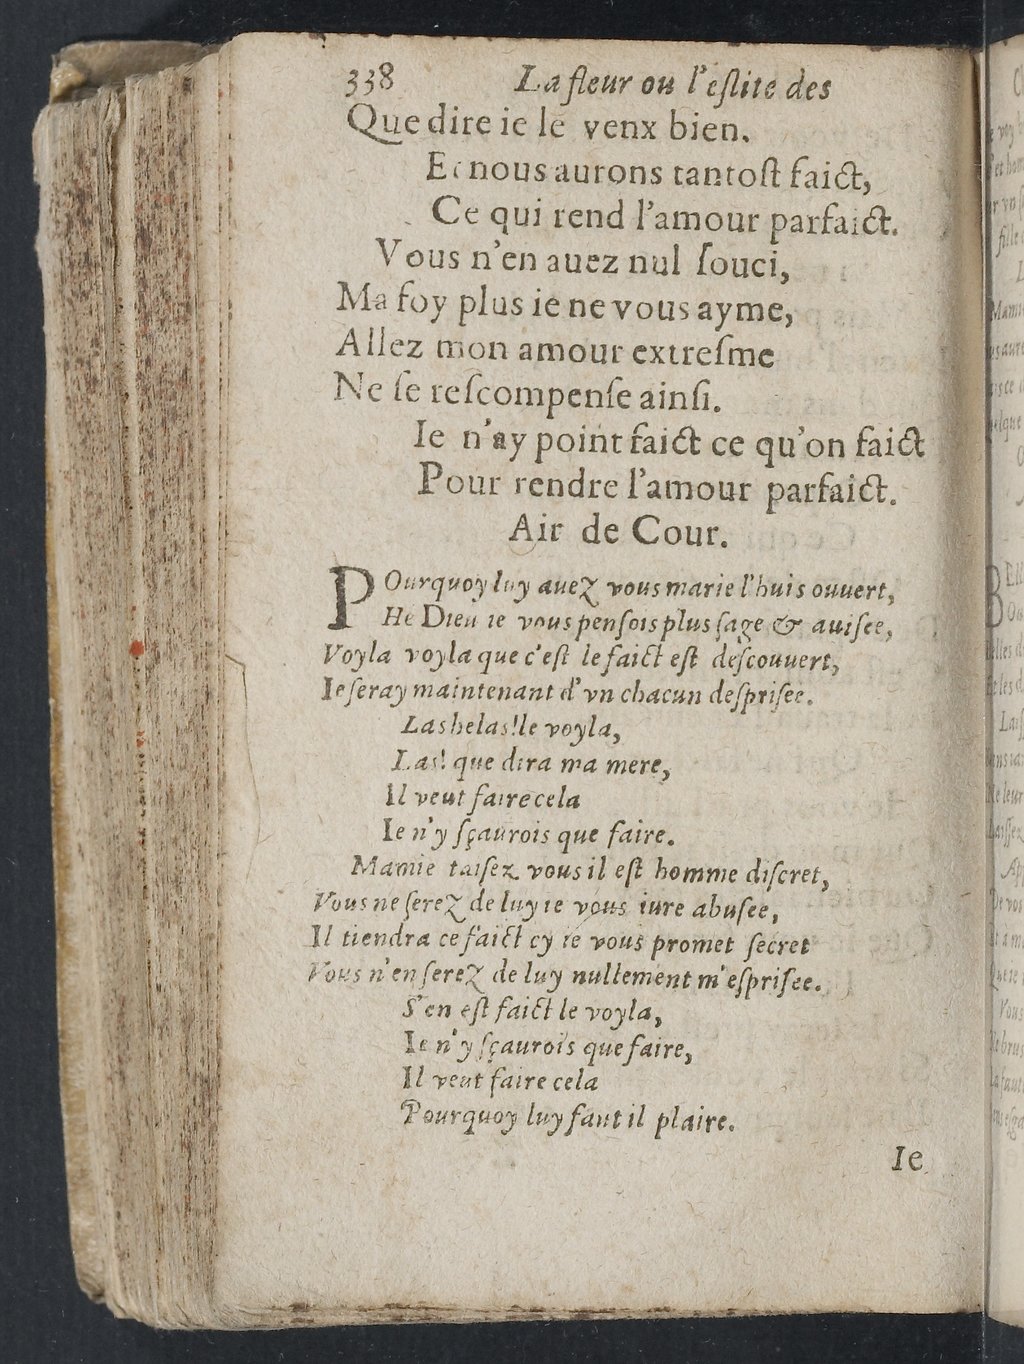 338 La fleur ou l'eſlite des
Que dire ie le venx bien.
Et nous aurons tantoſt faict,
Ce qui rend l'amour parfaict.
Vous n'en auez nul ſouci,
Ma foy plus ie ne vous ayme,
Allez mon amour extreſme
Ne ſe reſcompenſe ainſi.
Ie n'ay point faict ce qu'on faict
Pour rendre l'amour parfaict.
Air de Cour.
POurquoy luy auez vous marie l'huis ouuert,
He Dieu ie vous penſois plus ſage & auiſee,
Voyla voyla que c'eſt le faict eſt deſcouuert,
Ie ſeray maintenant d'vn chacun deſpriſee.
Las helas! le voyla,
Las! que dira ma mere,
Il veut faire cela
Ie n'y ſçaurois que faire.
Mamie taiſez vous il eſt homme diſcret,
Vous ne ſerez de luy ie vous iure abuſee,
Il tiendra ce faict cy ie vous promet ſecret
Vous n'en ſerez de luy nullement m'eſpriſee.
S'en eſt faict le voyla,
Ie n'y ſçaurois que faire,
Il veut faire cela
Pourquoy luy faut il plaire.
Ie